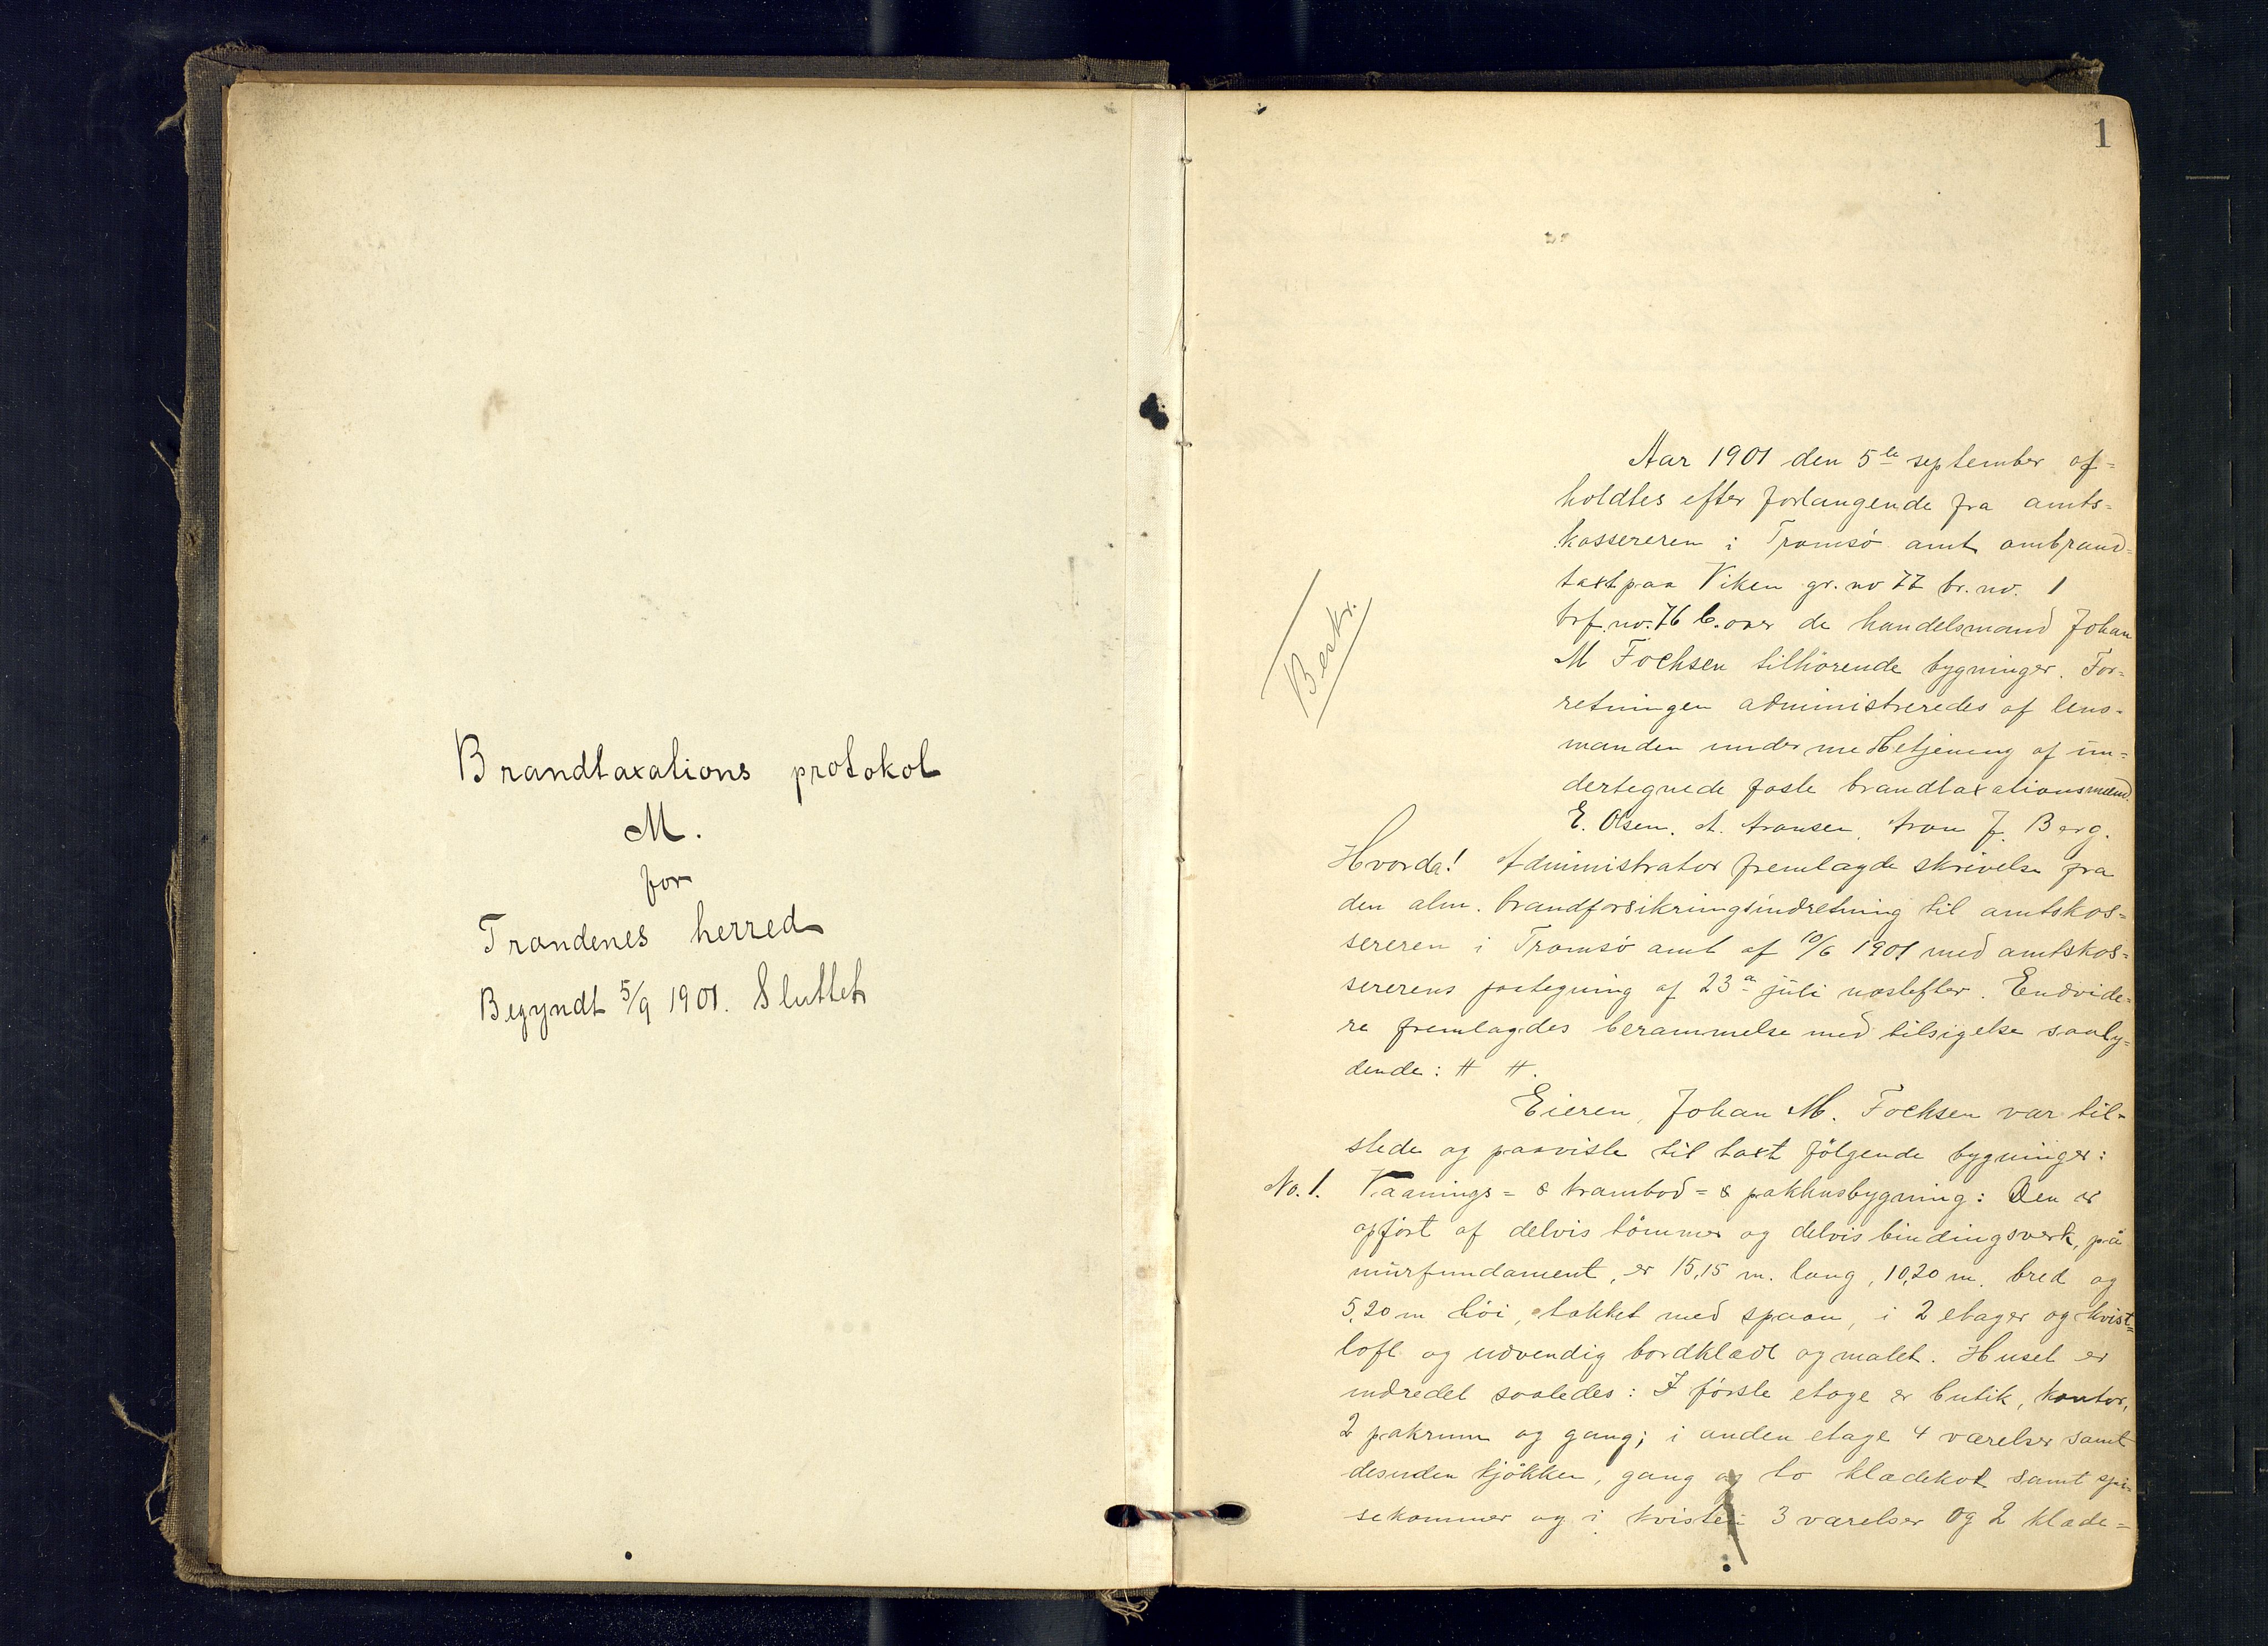 Brandtaxations protokol
M.
for
Trondenes herred
Begyndt 5/9 1901. Sluttet
1
Aar 1901 den 5te september af=
holdtes efter forlangende fra amts=
kassereren i Tromsø amt ombrand=
taxt paa Viken gr. no 77 br. no. 1
brf. no. 76 b. over de handelsmand Johan
M Fochsen tilhörende bygninger. For=
retningen administreredes af lens=
manden under medbetjening af un=
dertegnede faste brandtaxationsmænd
E. Olsen. A. Hansen. Aron J. Berg.
Bestr.
Hvorda! Administrator fremlagde skrivelse fra
den alm. brandforsikringsindretning til amtskas=
sereren i Tromsö amt af 10/6 1901 med amtskas=
sererens paategning af 23a juli næstefter. Endvide=
re fremlagdes berammelse med tilsigelse saaly=
dende: # #.
Eieren, Johan M. Fochsen var til=
stede og paaviste til taxt fölgende bygninger:
No. 1. Vaanings= & krambod= & pakhusbygning: Den er
opfört af delvis tömmer og delvis bindingsverk, på
murfundament, er 15,15 m. lang, 10,20 m. bred og
5,20 m höi, takket med spaan, i 2 etager og kvist=
loft og udvendig bordklædt og malet. Huset er
indredet saaledes: I förste etage er butik, kontor,
2 pakrum og gang; i anden etage 4 værelser samt
desuden kjökken, gang og to klædekot samt spi=
sekammer og i kvisten 3 værelser og 2 klæde=